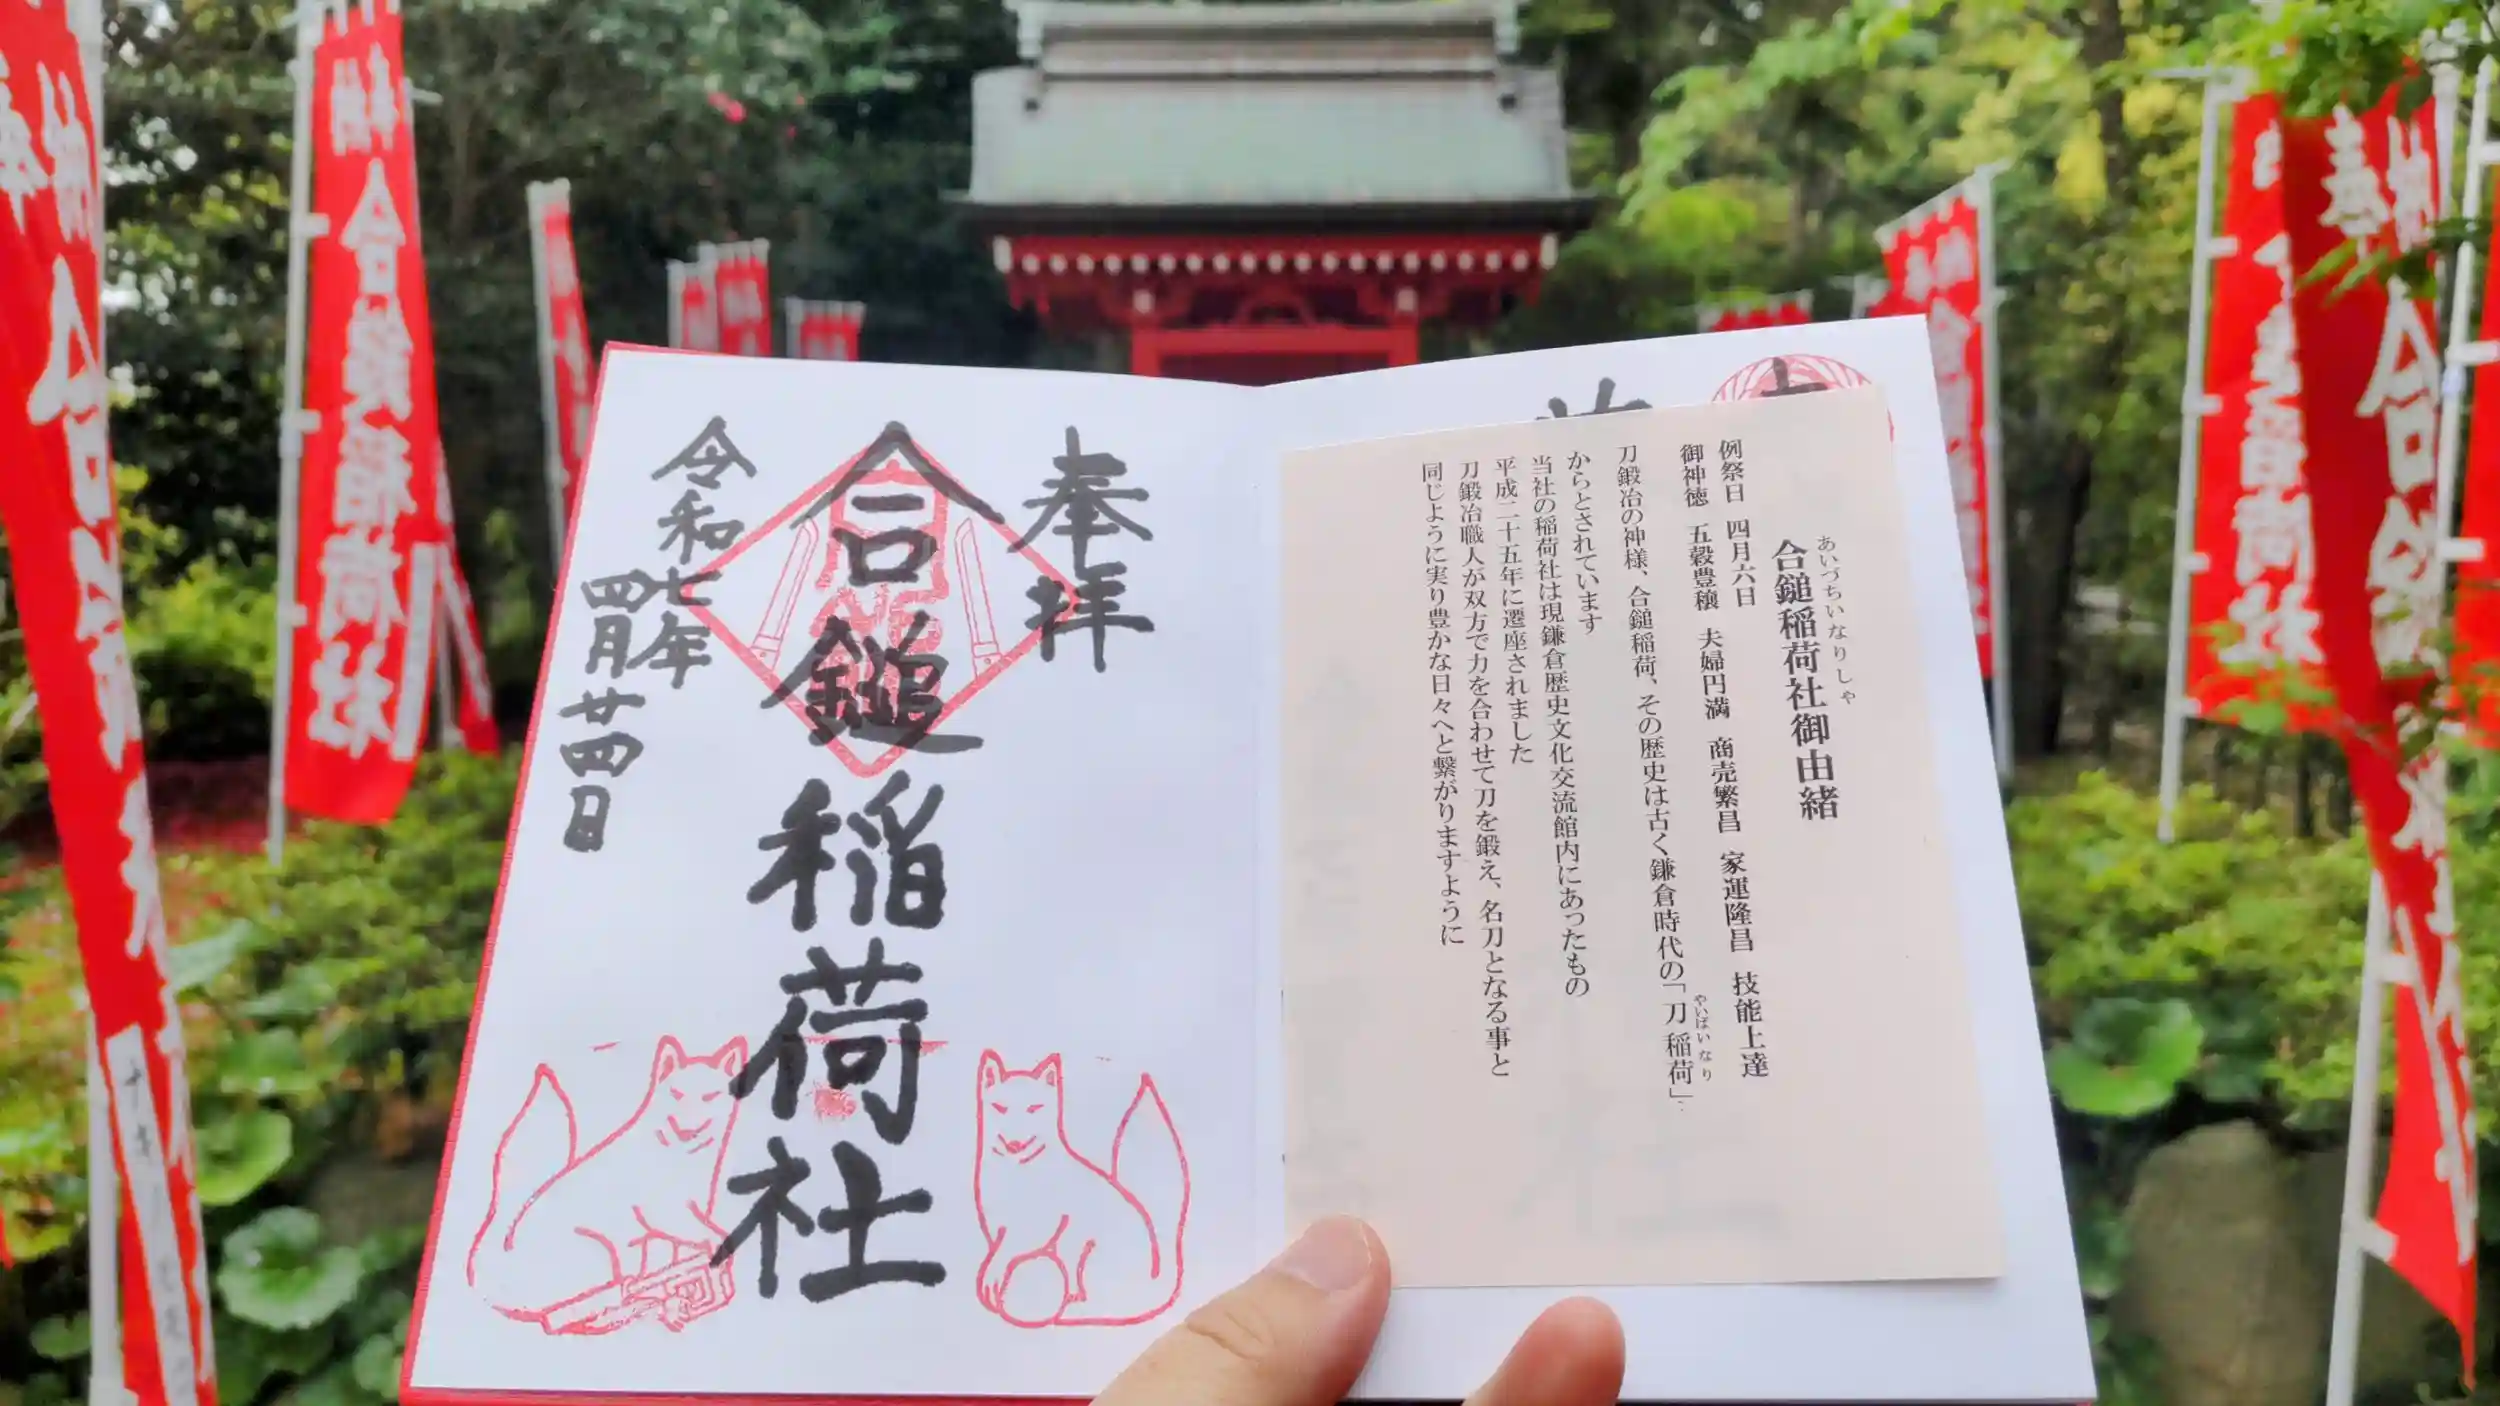 奉拝
合鎚稲荷社
令和七年
四月廿四日
合鎚稲荷社御由緒
あいづちいなりしゃ
例祭日 四月六日
御神徳 五穀豊穣 夫婦円満 商売繁昌 家運隆昌 技能上達
刀鍛冶の神様、合鎚稲荷、その歴史は古く鎌倉時代の「刀稲荷」
やいばいなり
からとされています
当社の稲荷社は現鎌倉歴史文化交流館内にあったもの
平成二十五年に遷座されました
刀鍛冶職人が双方で力を合わせて刀を鍛え、名刀となる事と
同じように実り豊かな日々へと繋がりますように
合鎚稲荷社
奉
合鎚稲荷社